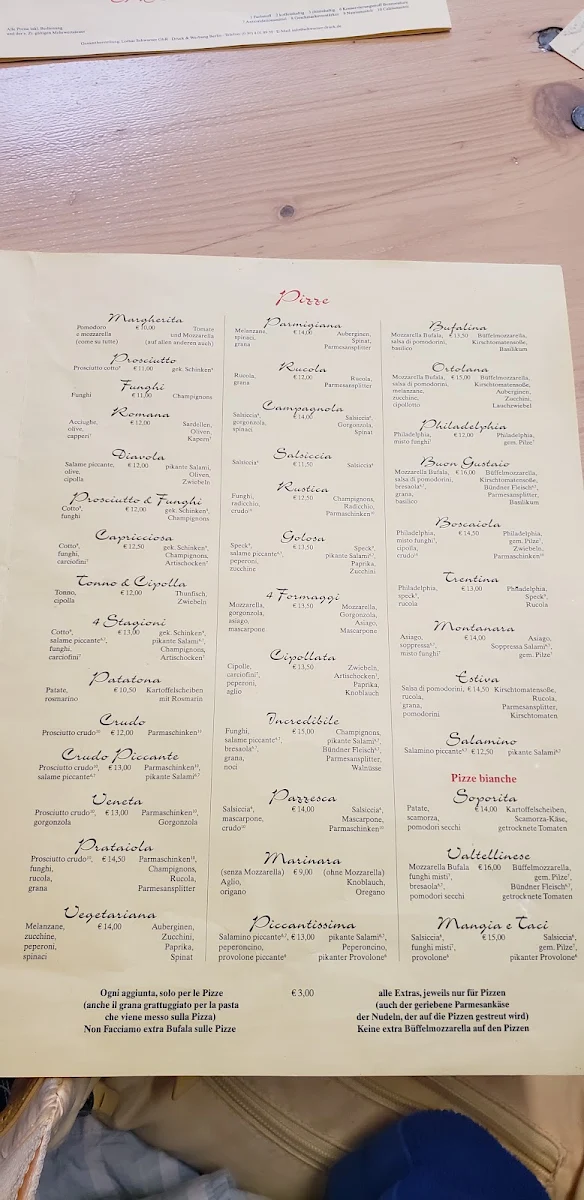 Alle Preise inkl. Bedienung
Pizze
Margherita
Pomodoro € 10,00 Tomate
e mozzarella und Mozzarella
(come su tutte) (auf allen anderen auch)
Prosciutto
Prosciutto cotto⁹ € 11,00 gek. Schinken⁹
Funghi
Funghi € 11,00 Champignons
Romana
Acciughe, € 12,00 Sardellen,
olive, Oliven,
capperi⁷ Kapern⁷
Diavola
Salame piccante, € 12,00 pikante Salami,
olive, Oliven,
cipolla Zwiebeln
Prosciutto & Funghi
Cotto⁹, € 12,00 gek. Schinken⁹,
funghi Champignons
Capricciosa
Cotto⁹, € 12,50 gek. Schinken⁹,
funghi, Champignons,
carciofini⁷ Artischocken⁷
Tonno & Cipolla
Tonno, € 12,00 Thunfisch,
cipolla Zwiebeln
4 Stagioni
Cotto⁹, € 13,00 gek. Schinken⁹,
salame piccante⁶,⁷, pikante Salami⁶,⁷,
funghi, Champignons,
carciofini⁷ Artischocken⁷
Patatona
Patate, € 10,50 Kartoffelscheiben
rosmarino mit Rosmarin
Crudo
Prosciutto crudo¹⁰ € 12,00 Parmaschinken¹⁰
Crudo Piccante
Prosciutto crudo¹⁰, € 13,00 Parmaschinken¹⁰,
salame piccante⁶,⁷ pikante Salami⁶,⁷
Veneta
Prosciutto crudo¹⁰, € 13,00 Parmaschinken¹⁰,
gorgonzola Gorgonzola
Prataiola
Prosciutto crudo¹⁰, € 14,50 Parmaschinken¹⁰,
funghi, Champignons,
rucola, Rucola,
grana Parmesansplitter
Vegetariana
Melanzane, € 14,00 Auberginen,
zucchine, Zucchini,
peperoni, Paprika,
spinaci Spinat
Parmigiana
Melanzane, € 14,00 Auberginen,
spinaci, Spinat,
grana Parmesansplitter
Rucola
Rucola, € 12,00 Rucola,
grana Parmesansplitter
Campagnola
Salsiccia⁶, € 14,00 Salsiccia⁶,
gorgonzola, Gorgonzola,
spinaci Spinat
Salsiccia
Salsiccia⁶ € 11,50 Salsiccia⁶
Rustica
Funghi, € 12,50 Champignons,
radicchio, Radicchio,
crudo¹⁰ Parmaschinken¹⁰
Golosa
Speck⁹, € 13,50 Speck⁹,
salame piccante⁶,⁷, pikante Salami⁶,⁷,
peperoni, Paprika,
zucchine Zucchini
4 Formaggi
Mozzarella, € 13,50 Mozzarella,
gorgonzola, Gorgonzola,
asiago, Asiago,
mascarpone Mascarpone
Cipollata
Cipolle, € 13,50 Zwiebeln,
carciofini⁷, Artischocken⁷,
peperoni, Paprika,
aglio Knoblauch
Incredibile
Funghi, € 15,00 Champignons,
salame piccante⁶,⁷, pikante Salami⁶,⁷,
bresaola⁶,⁷, Bündner Fleisch⁶,⁷,
grana, Parmesansplitter,
noci Walnüsse
Pazzesca
Salsiccia⁶, € 14,00 Salsiccia⁶,
mascarpone, Mascarpone,
crudo¹⁰ Parmaschinken¹⁰
Marinara
(senza Mozzarella) € 9,00 (ohne Mozzarella)
Aglio, Knoblauch,
origano Oregano
Piccantissima
Salamino piccante⁶,⁷, € 13,00 pikante Salami⁶,⁷,
peperoncino, Peperoncino,
provolone piccante⁶ pikanter Provolone⁶
Bufalina
Mozzarella Bufala, € 13,50 Büffelmozzarella,
salsa di pomodorini, Kirschtomatensoße,
basilico Basilikum
Ortolana
Mozzarella Bufala, € 15,00 Büffelmozzarella,
salsa di pomodorini, Kirschtomatensoße,
melanzane, Auberginen,
zucchine, Zucchini,
cipollotto Lauchzwiebel
Philadelphia
Philadelphia, € 12,00 Philadelphia,
misto funghi⁷ gem. Pilze⁷
Buon Gustaio
Mozzarella Bufala, € 16,00 Büffelmozzarella,
salsa di pomodorini, Kirschtomatensoße,
bresaola⁶,⁷, Bündner Fleisch⁶,⁷,
grana, Parmesansplitter,
basilico Basilikum
Boscaiola
Philadelphia, € 14,50 Philadelphia,
misto funghi⁷, gem. Pilze⁷,
cipolla, Zwiebeln,
crudo¹⁰ Parmaschinken¹⁰
Trentina
Philadelphia, € 13,00 Philadelphia,
speck⁹, Speck⁹,
rucola Rucola
Montanara
Asiago, € 14,00 Asiago,
soppressa⁶,⁷, Soppressa Salami⁶,⁷,
misto funghi⁷ gem. Pilze⁷
Estiva
Salsa di pomodorini, € 14,50 Kirschtomatensoße,
rucola, Rucola,
grana, Parmesansplitter,
pomodorini Kirschtomaten
Salamino
Salamino piccante⁶,⁷ € 12,50 pikante Salami⁶,⁷
Pizze bianche
Saporita
Patate, € 14,00 Kartoffelscheiben,
scamorza, Scamorza-Käse,
pomodori secchi getrocknete Tomaten
Valtellinese
Mozzarella Bufala € 16,00 Büffelmozzarella,
funghi misti⁷, gem. Pilze⁷,
bresaola⁶,⁷, Bündner Fleisch⁶,⁷,
pomodori secchi getrocknete Tomaten
Mangia e Taci
Salsiccia⁶, € 15,00 Salsiccia⁶,
funghi misti⁷, gem. Pilze⁷,
provolone⁶ pikanter Provolone⁶
Ogni aggiunta, solo per le Pizze € 3,00 alle Extras, jeweils nur für Pizzen
(anche il grana grattuggiato per la pasta (auch der geriebene Parmesankäse
che viene messo sulla Pizza) der Nudeln, der auf die Pizzen gestreut wird)
Non Facciamo extra Bufala sulle Pizze Keine extra Büffelmozzarella auf den Pizzen